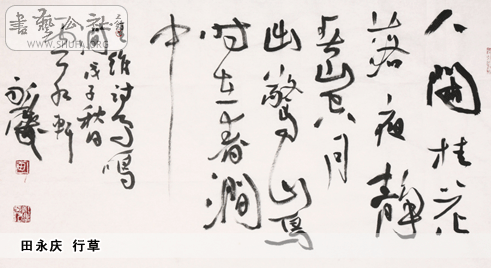 書藝公社
WWW.SHUFA.ORG
人閒桂花
落夜静
春山空月
出驚山鳥
时在春澗
中
王維詩鳥鳴
澗戊子秋日
軒
永慶
田永庆 行草